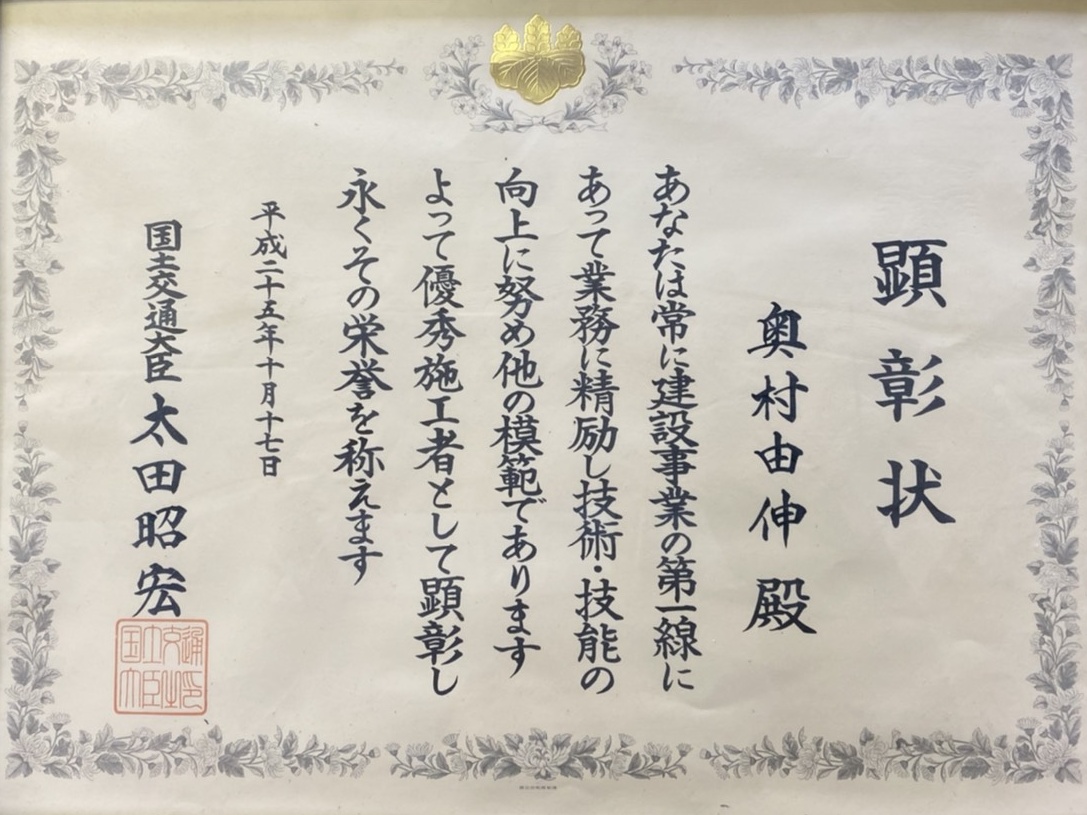 顕彰状
奥村由伸殿
あなたは常に建設事業の第一線に
あって業務に精励し技術・技能の
向上に努め他の模範であります
よって優秀施工者として顕彰し
永くその栄誉を称えます
平成二十五年十月十七日
国土交通大臣 太田昭宏